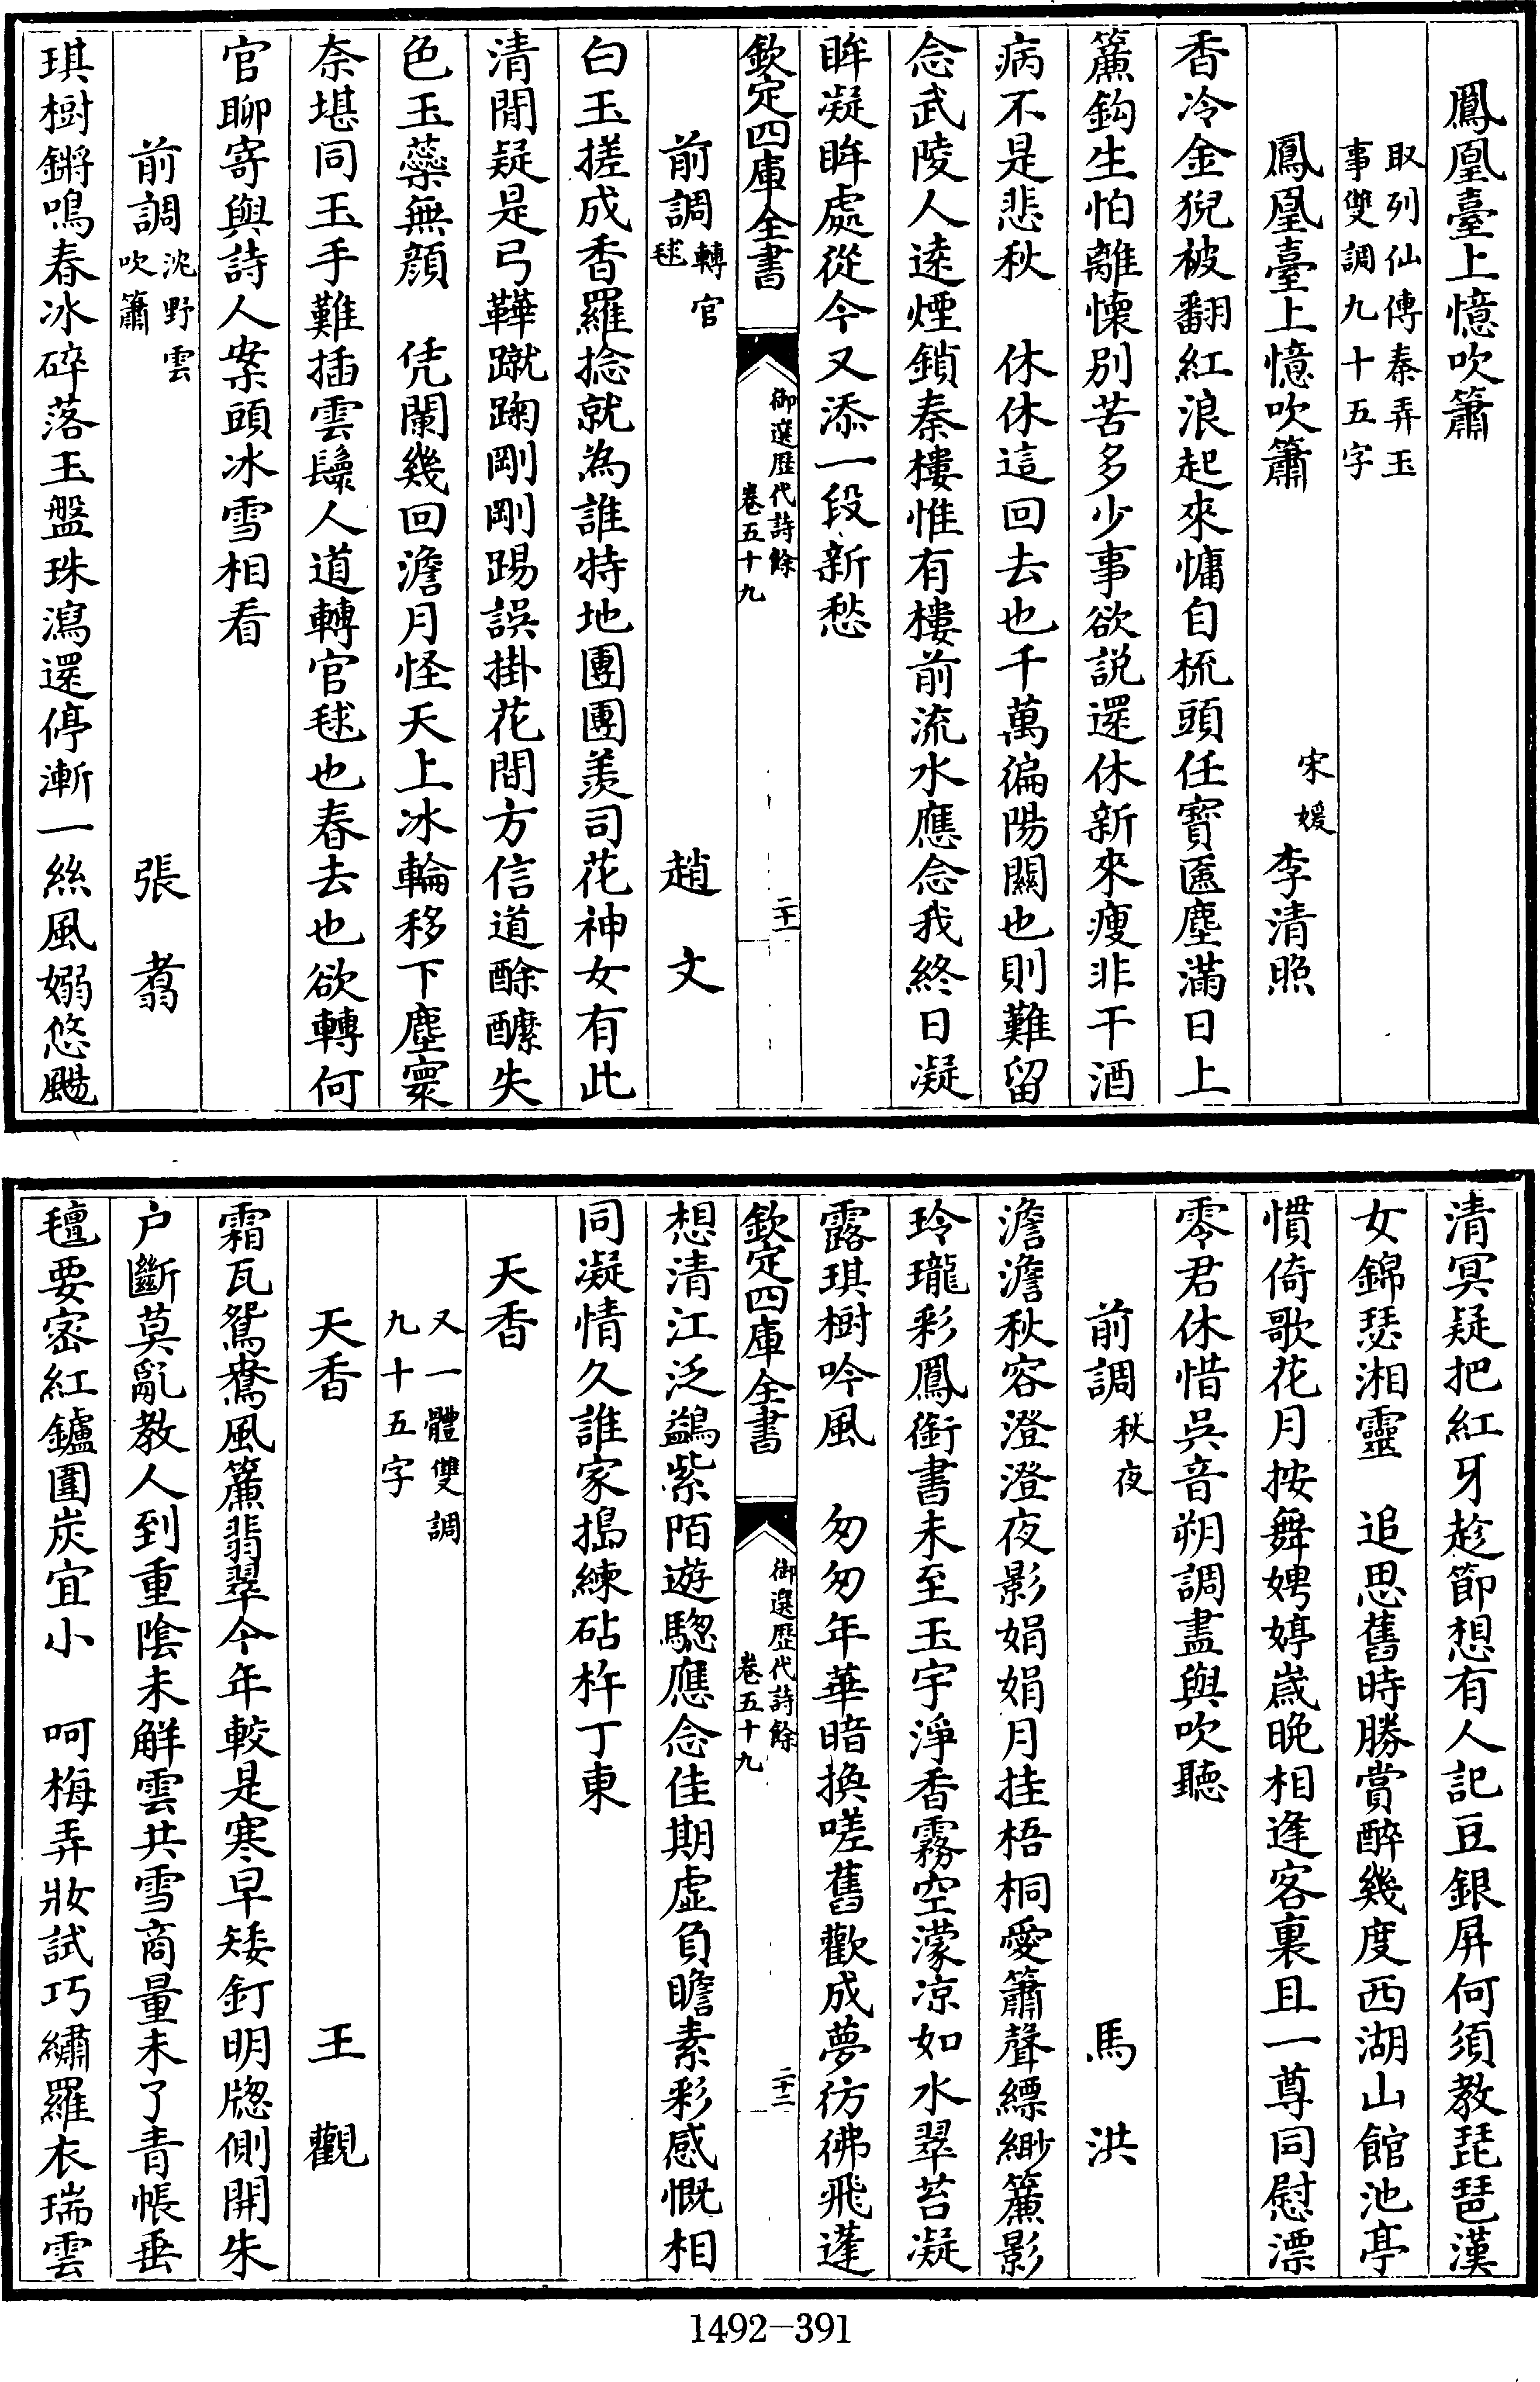 鳳凰臺上憶吹簫
取列仙傳秦弄玉
事雙調九十五字
鳳凰臺上憶吹簫 宋媛 李清照
香冷金猊被翻紅浪起來慵自梳頭任寳匳塵滿日上
簾鈎生怕離懷别苦多少事欲説還休新來瘦非干酒
病不是悲秋 休休這回去也千萬徧陽關也則難留
念武陵人逺煙鎖秦樓惟有樓前流水應念我終日凝
眸凝眸處從今又添一段新愁
欽定四庫全書 御選歴代詩餘 卷五十九 二十一
前調 轉官毬 趙文
白玉搓成香羅捻就為誰特地團團羨司花神女有此
清閒疑是弓鞾蹴踘剛剛踢誤掛花間方信道酴醾失
色玉蘂無顔 凭闌幾回澹月怪天上冰輪移下塵寰
奈堪同玉手難插雲鬟人道轉官毬也春去也欲轉何
官聊寄與詩人案頭冰雪相看
前調 沈野雲吹簫 張翥
琪樹鏘鳴春冰碎落玉盤珠瀉還停漸一絲風嫋悠颺
清冥疑把紅牙趂節想有人記豆銀屏何須教琵琶漢
女錦瑟湘靈 追思舊時勝賞醉幾度西湖山館池亭
慣倚歌花月按舞娉婷嵗晚相逢客裏且一尊同慰漂
零君休惜吳音朔調盡與吹聽
前調 秋夜 馬洪
澹澹秋容澄澄夜影娟娟月挂梧桐愛簫聲縹緲簾影
玲瓏彩鳳銜書未至玉宇淨香霧空濛凉如水翠苔凝
露琪樹吟風 匆匆年華暗換嗟舊歡成夢彷彿飛蓬
欽定四庫全書 御選歴代詩餘 卷五十九 二十二
想清江泛鷁紫陌遊驄應念佳期虚負瞻素彩感慨相
同凝情久誰家搗練砧杵丁東
天香
又一體雙調
九十五字
天香 王觀
霜瓦鴛鴦風簾翡翠今年較是寒早矮釘明牕側開朱
户斷莫亂教人到重陰未解雲共雪商量未了青帳垂
氊要宻紅鑪圍炭宜小 呵梅弄妝試巧繡羅衣瑞雲
1492-391